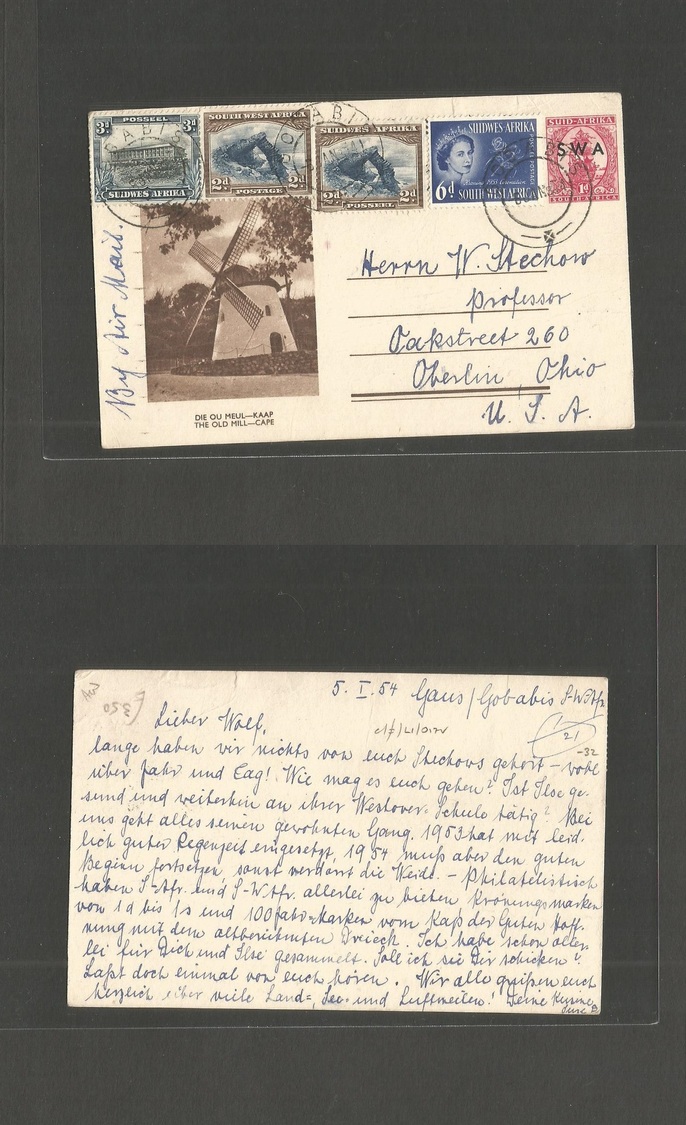 POSSEEL
3d 3d
SUIDWES AFRIKA
SOUTH WEST AFRICA
2d 2d
POSTAGE
SUIDWES AFRIKA
2d 2d
POSSEEL
SUIDWES-AFRIKA
6d
SOUTH WEST AFRICA
SUID-AFRIKA
SWA
1d
SOUTH AFRICA
By Air Mail.
Herrn W. Stechow
Professor
Oakstreet 260
Oberlin, Ohio
U. S. A.
DIE OU MEUL—KAAP
THE OLD MILL—CAPE
5. I. 54 Gaus/Gobabis S-W Afr.
350
21
-32
Lieber Wolf,
lange haben wir nichts von euch Stechows gehört – wohl
über Jahr und Tag! Wie mag es euch gehen? Ist Ilse ge-
sund und weiterhin an ihrer Westover-Schule tätig? Bei
uns geht alles seinen gewohnten Gang. 1953 hat mit leid-
lich guter Regenzeit eingesetzt, 1954 muß aber den guten
Beginn fortsetzen, sonst verdorrt die Weide. – Philatelistisch
haben S-Afr. und S-W Afr. allerlei zu bieten Krönungsmarken
von 1d bis 1s und 100 Jahr-Marken vom Kap der Guten Hoff-
nung mit dem altberühmten Dreieck. Ich habe schon aller-
lei für Dich und Ilse gesammelt. Soll ich sie Dir schicken?
Laßt doch einmal von euch hören. Wir alle grüßen euch
herzlich über viele Land-, See- und Luftmeilen! Deine Kusine